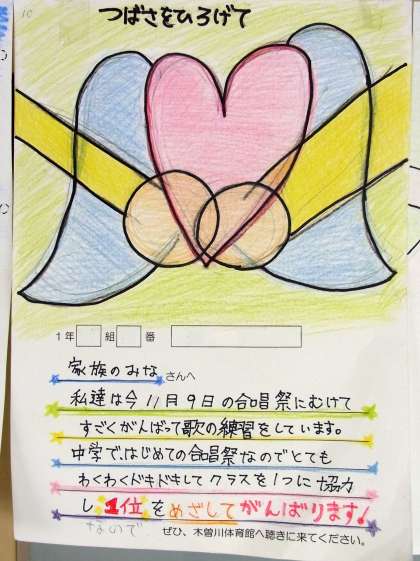 10
つばさをひろげて
1年 組 番
家族のみな さんへ
私達は今11月9日の合唱祭にむけて
すごくがんばって歌の練習をしています。
中学で、はじめての合唱祭なのでとても
わくわくドキドキしてクラスを1つに協力
し1位をめざしてがんばります!
ないで
ぜひ、木曽川体育館へ聴きに来てください。